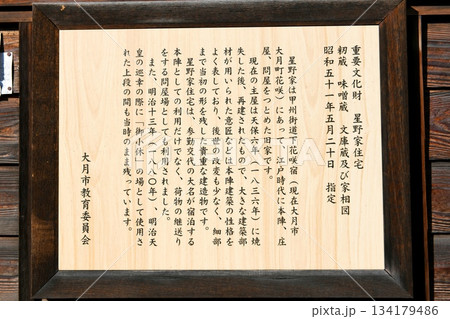 重要文化財　星野家住宅
籾蔵　味噌蔵　文庫蔵及び家相図
昭和五十一年五月二十日　指定
星野家は甲州街道下花咲宿（現在大月市
大月町花咲）にあって、江戸時代に本陣、庄
屋、問屋をつとめた旧家です。
現在の主屋は天保六年（一八三六年）に焼
失した後、再建されたもので、大きな建築部
材が用いられた意匠などは本陣建築の性格を
よく表しており、後世の改変も少なく、細部
まで当初の形を残した貴重な建造物です。
星野家住宅は、参勤交代の大名が宿泊する
本陣としての利用だけでなく、荷物の継送り
をする問屋場としても利用されました。
また、明治十三年（一八八〇年）、明治天
皇の巡幸の際に「御小休」の場として使用さ
れた上段の間も当時のまま残っています。
大月市教育委員会
134179486